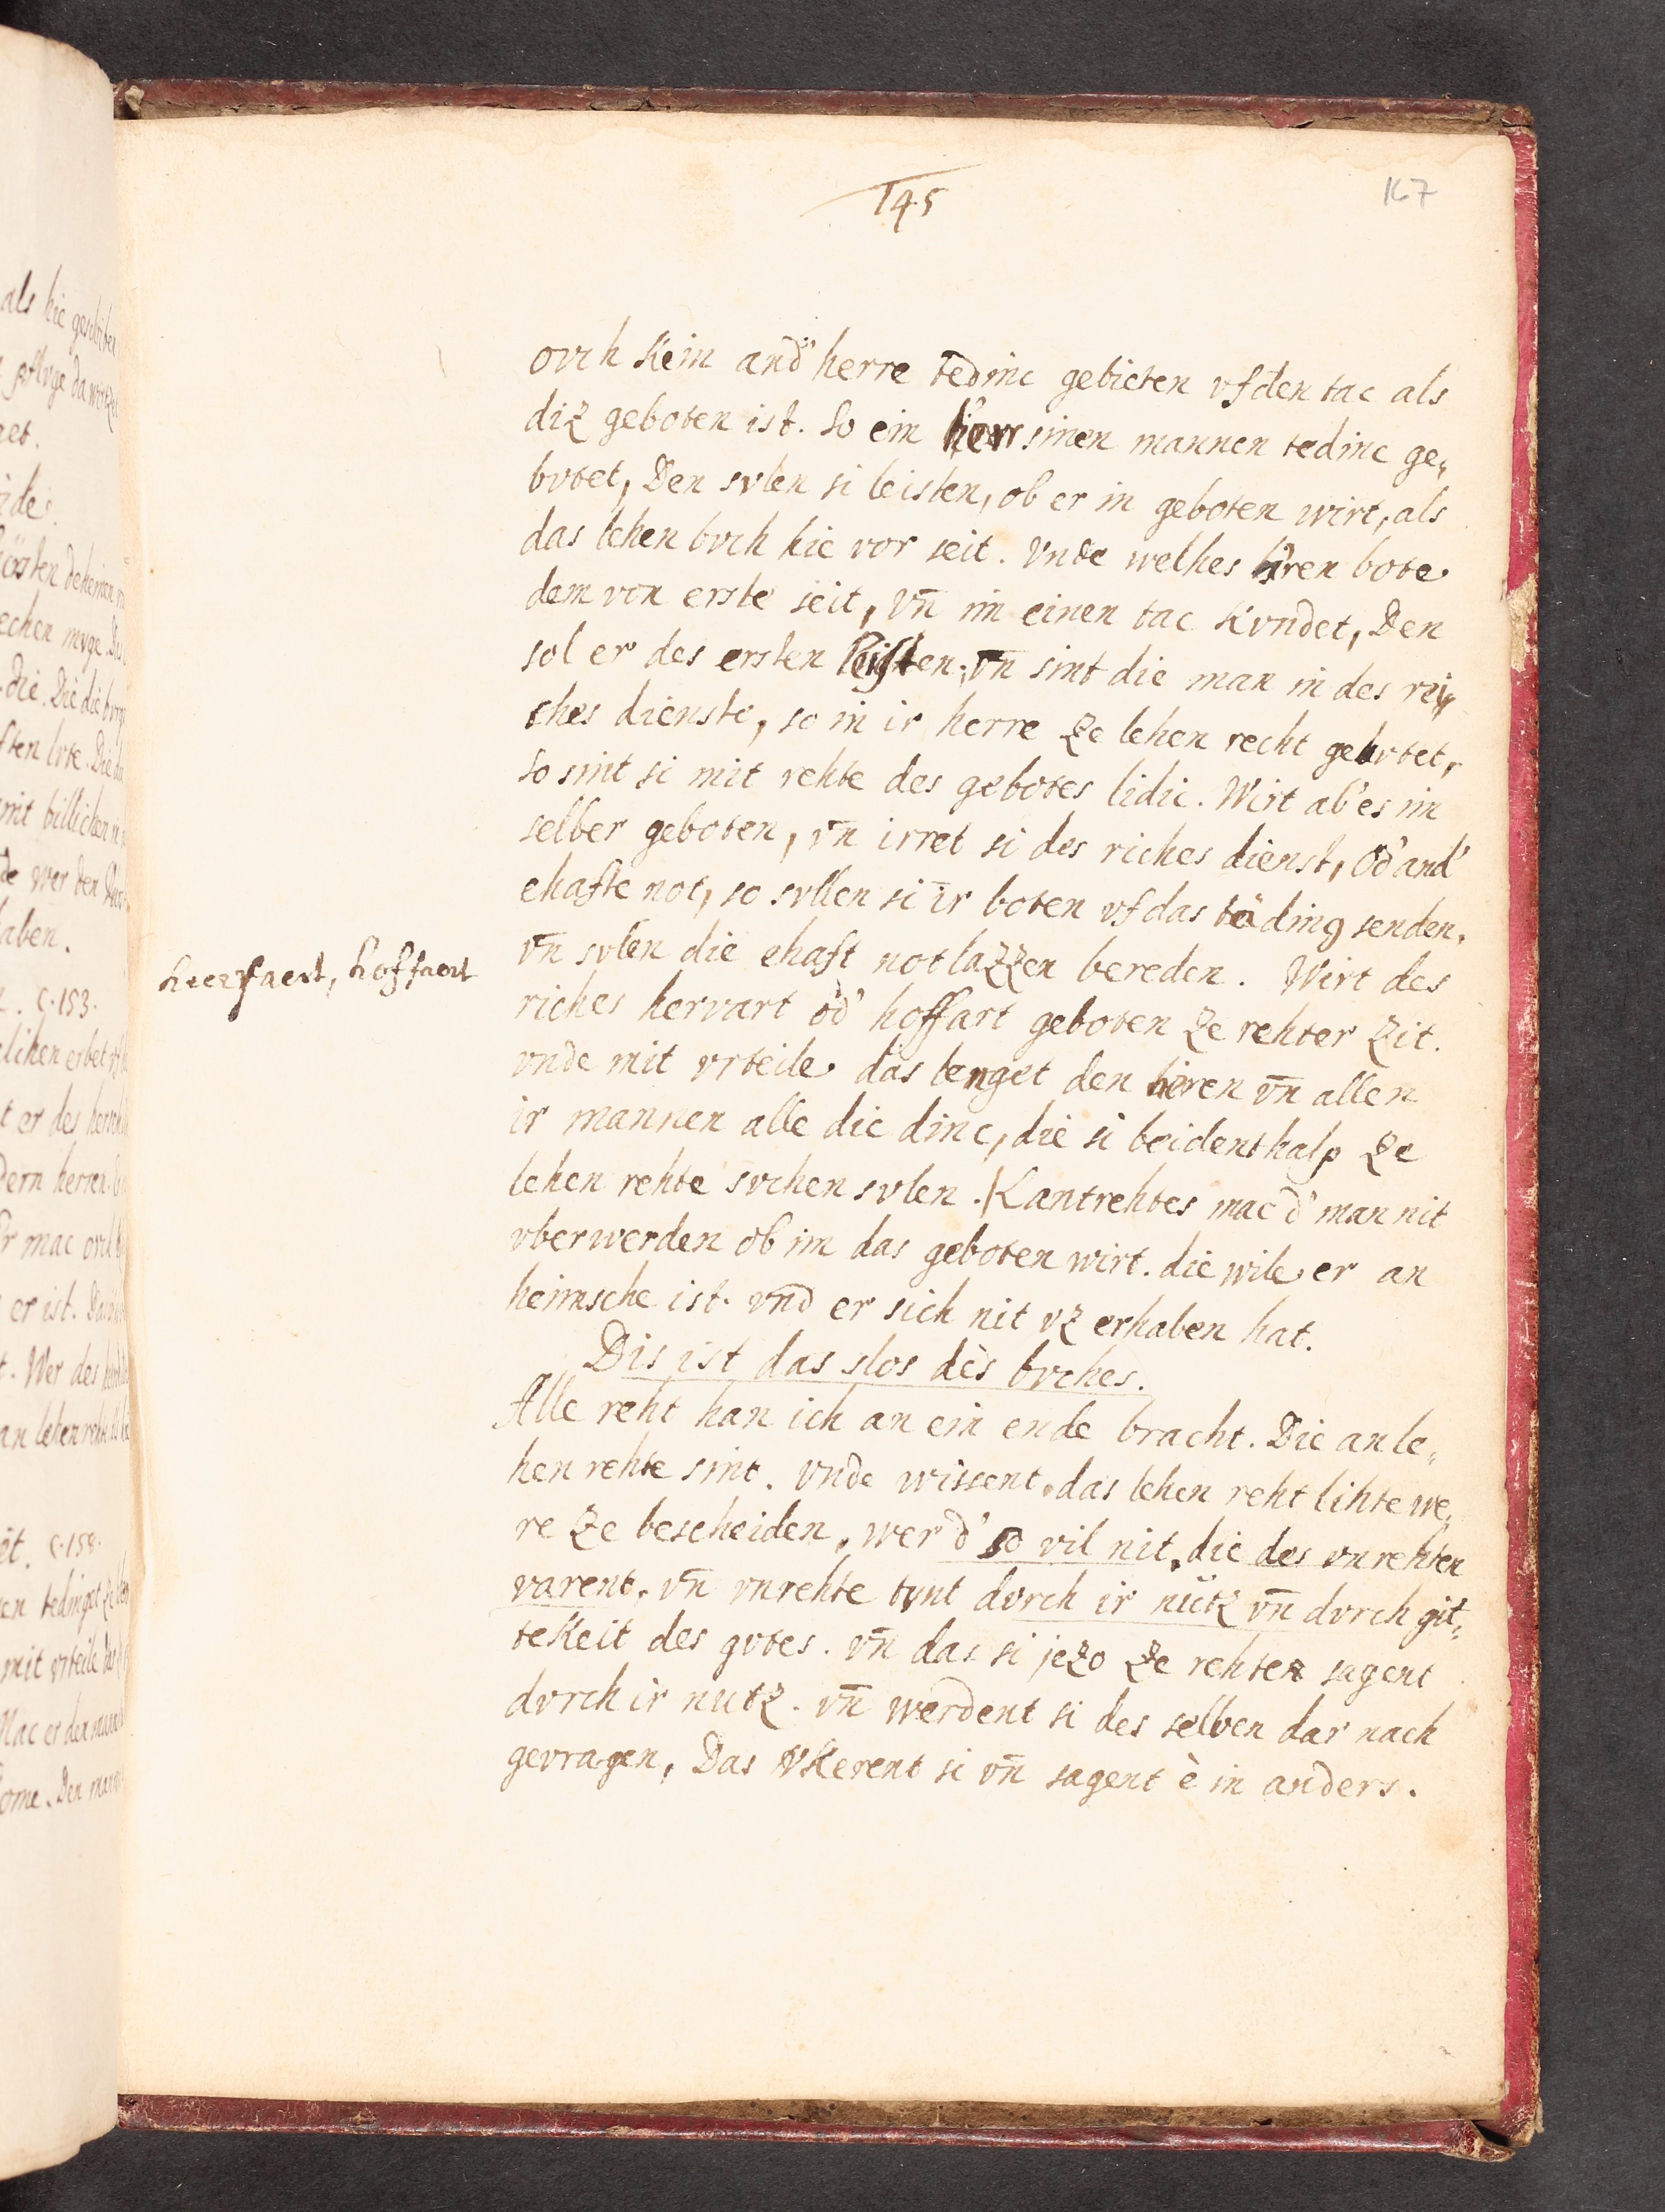 145
167
ovch kein and' herre tedinc gebieten vf den tac als
diz geboten ist. So ein herr sinen mannen tedinc ge„
bvtet, Den svlen si leisten, ob er in geboten wirt, als
das lehen bvch hie vor seit. Vnde welhes hren bote
dem von erste seit, vn̄ im einen tac kvndet, Den
sol er des ersten leisten, vn̄ sint die man in des rei„
ches dienste, so in ir herre ze lehen recht gebvtet,
so sint si mit rehte des gebotes lidic. Wirt ab' es im
selber geboten, vn̄ irret si des riches dienst, Od' and'
ehafte not, so svllen si ir boten vf das täding senden,
vn̄ svlen die ehaft not lazzen bereden. Wirt des
heerfaert, hoffaert
riches hervart od' hoffart geboten ze rehter zit.
vnde mit vrteile das lenget den hren vn̄ allen
ir mannen alle die dinc, die si beidenthalp ze
lehen rehte svchen svlen. Lantrehtes mac d' man nit
vber werden ob im das geboten wirt. die wile er an
heimsche ist. vnd er sich nit vz erhaben hat.
Dis ist das slos des bvches.
Alle reht han ich an ein ende bracht. Die an le„
hen rehte sint. Vnde wissent, das lehen reht lihte we„
re ze bescheiden, wer d' so vil nit, die des vnrehten
varent. vn̄ vnrehte tvnt dvrch ir nütz vn̄ dvrch git„
tekeit des gvtes. vn̄ das si jezo ze rehten sagent
dvrch ir nutz. vn̄ werdent si des selben dar nach
gevragen, Das vkerent si vn̄ sagent è in anders.